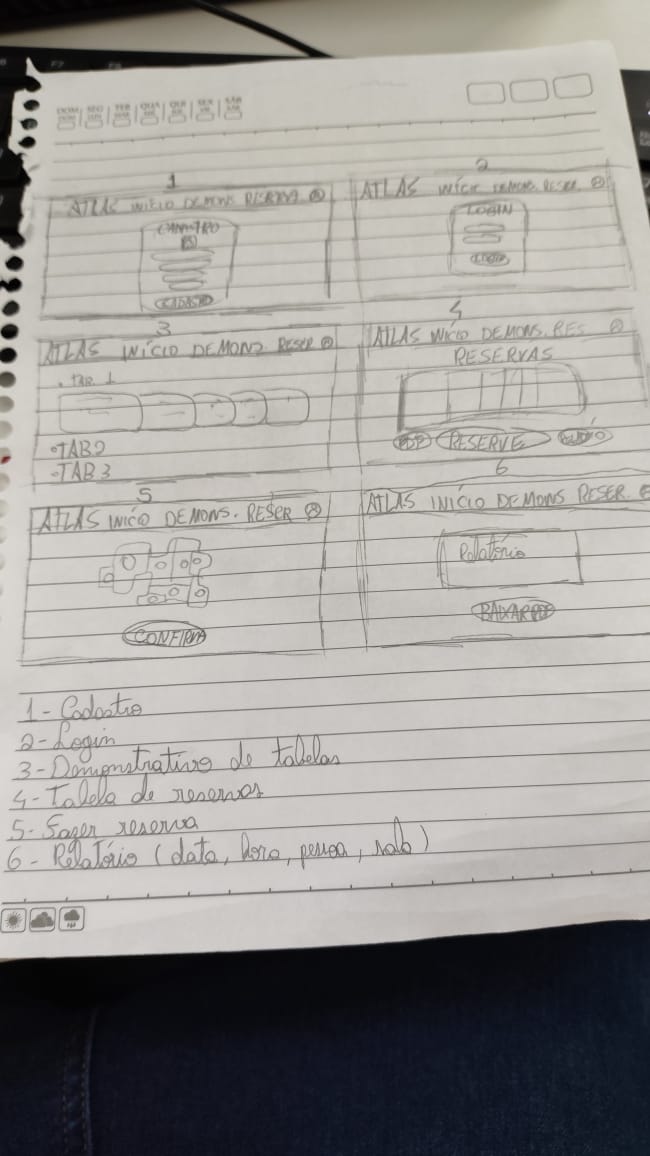 DOM SEG TER QUA QUI SEX SÁB
1
ATLAS INÍCIO DEMONS RESERVA
CADASTRO
CADASTRO
2
ATLAS INÍCIO DEMONS. RESER.
LOGIN
LOGIN
3
ATLAS INÍCIO DEMONS RESER
• TAB. 1
• TAB 2
• TAB 3
4
ATLAS INÍCIO DEMONS. RES
RESERVAS
PDF RESERVE
5
ATLAS INÍCIO DEMONS. RESER
CONFIRMA
6
ATLAS INÍCIO DEMONS RESER.
Relatório
BAIXAR PDF
1- Cadastro
2- Login
3- Demonstrativo de tabelas
4- Tabela de reservas
5- Fazer reserva
6- Relatório (data, hora, pessoa, sala)